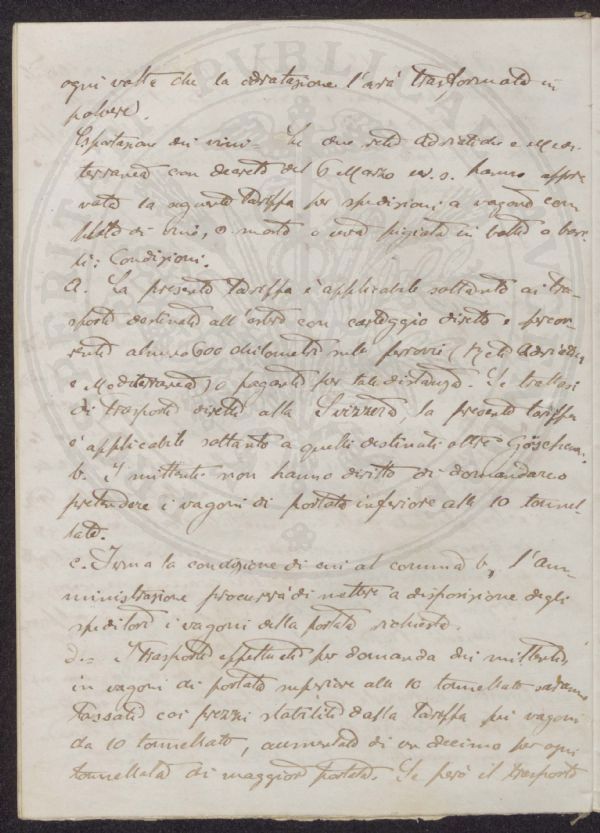 ogni volta che la idratazione l'avrà trasformata in
polvere.
Esportazione dei vini - Le due reti Adriatiche e Medi-
terranea con decreto del 6 Marzo u. s. hanno appro
vato la seguente tariffa per spedizioni a vagone com
pleto di vino, o mosto o uva pigiata in botti o bari-
li: Condizioni.
A. La presente tariffa è applicabile soltanto ai tra-
sporti destinati all'estero con carteggio diretto e percor-
renti almeno 600 chilometri sulle ferrovie (Reti Adriatica
e Mediterranea) o paganti per tale distanza. Se trattasi
di trasporti diretti alla Svizzera, la presente tariffa
è applicabile soltanto a quelli destinati oltre Göschenen.
b. I mittenti non hanno diritto di domandare o
pretendere i vagoni di portata inferiore alle 10 tonnel-
late.
c. Ferma la condizione di cui al comma b, l'am-
ministrazione procurerà di mettere a disposizione degli
speditori i vagoni della portata richiesta.
d. - I trasporti effettuati per domanda dei mittenti,
in vagoni di portata superiore alle 10 tonnellate saranno
tassati coi prezzi stabiliti dalla tariffa pei vagoni
da 10 tonnellate, aumentati di un decimo per ogni
tonnellata di maggior portata. Se però il trasporto
PUBLICA